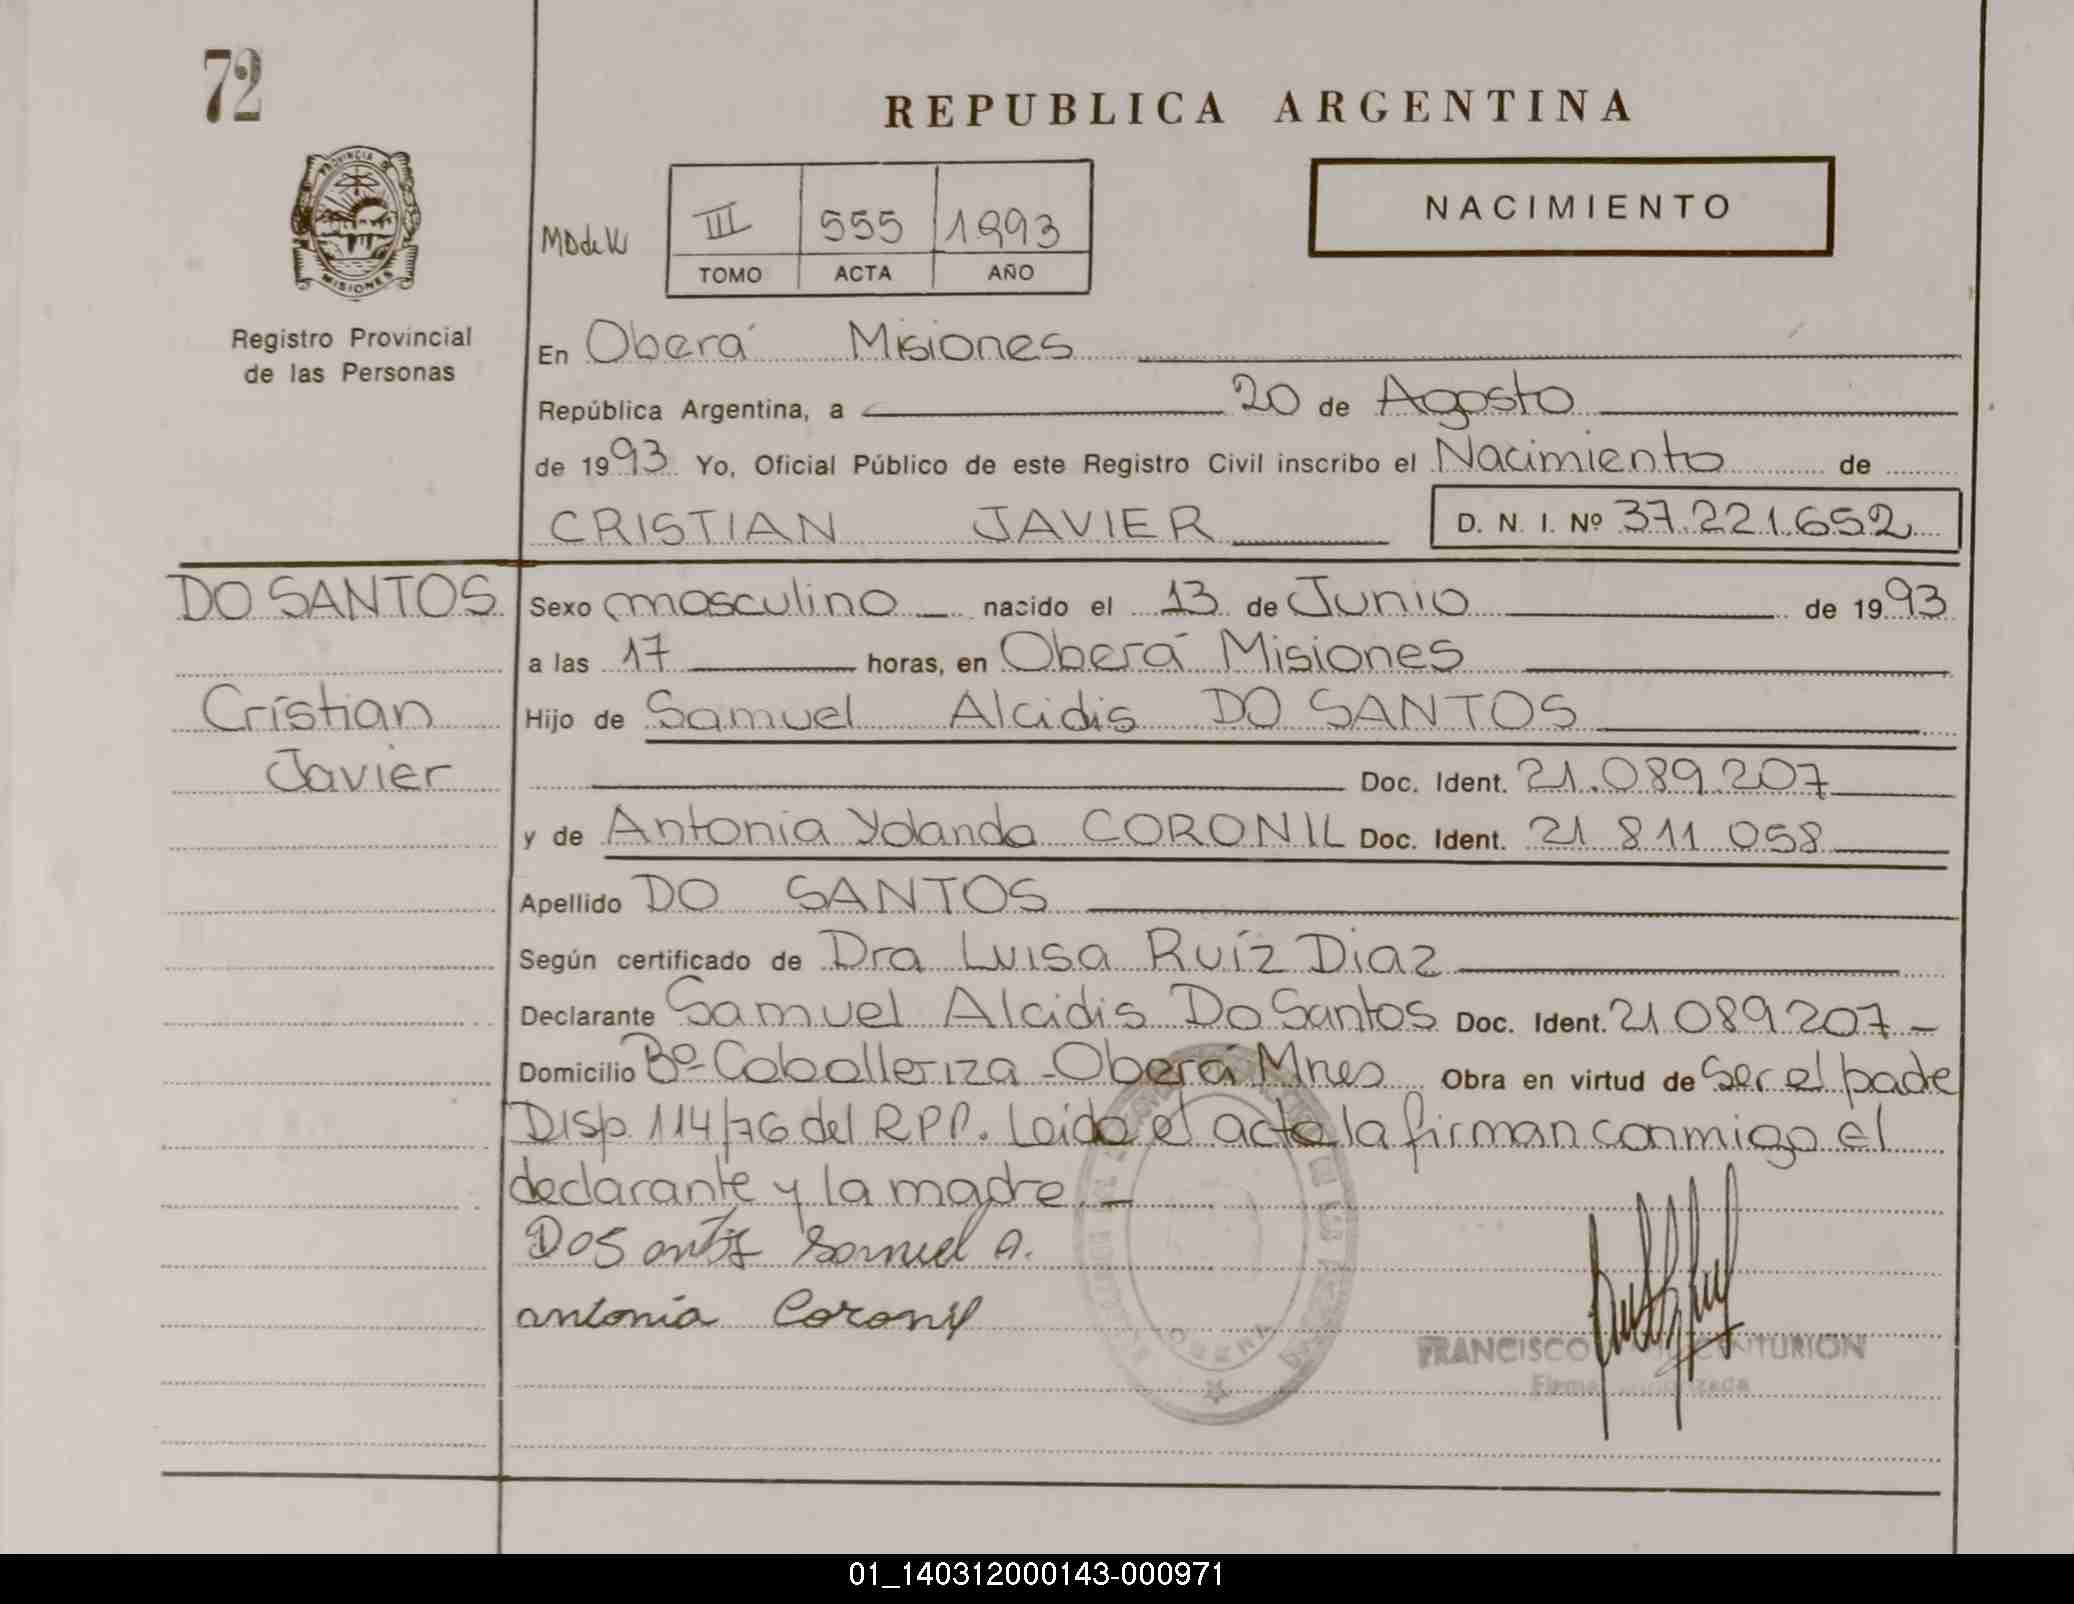 72
REPUBLICA ARGENTINA
PROVINCIA DE
MISIONES
III 555 1993
TOMO ACTA AÑO
NACIMIENTO
Registro Provincial
de las Personas
En Oberá Misiones
República Argentina, a 20 de Agosto
de 1993 Yo, Oficial Público de este Registro Civil inscribo el Nacimiento de
CRISTIAN JAVIER D. N. I. Nº 37.221.652
DO SANTOS
Cristian
Javier
Sexo masculino nacido el 13 de Junio de 1993
a las 17 horas, en Oberá Misiones
Hijo de Samuel Alcidis DO SANTOS
Doc. Ident. 21.089.207
y de Antonia Yolanda CORONIL Doc. Ident. 21 811 058
Apellido DO SANTOS
Según certificado de Dra Luisa Ruíz Diaz
Declarante Samuel Alcidis Do Santos Doc. Ident. 21 089 207 -
Domicilio Bº Caballeriza - Oberá Mnes Obra en virtud de Ser el padre
Disp. 114/76 del R.P.P. Leida el acta la firman conmigo el
declarante y la madre. -
Dos antos Samuel A.
Antonia Coronil
OBERA
FRANCISCO CENTURION
Firma
01_140312000143-000971